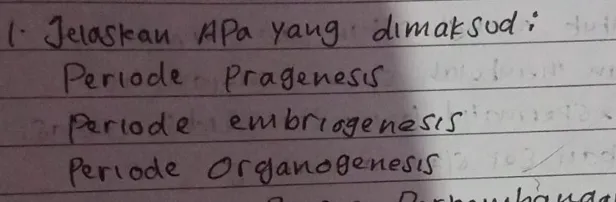 1. Jelaskan Apa yang dimaksud :
Periode Pragenesis
Periode embriogenesis
Periode Organogenesis